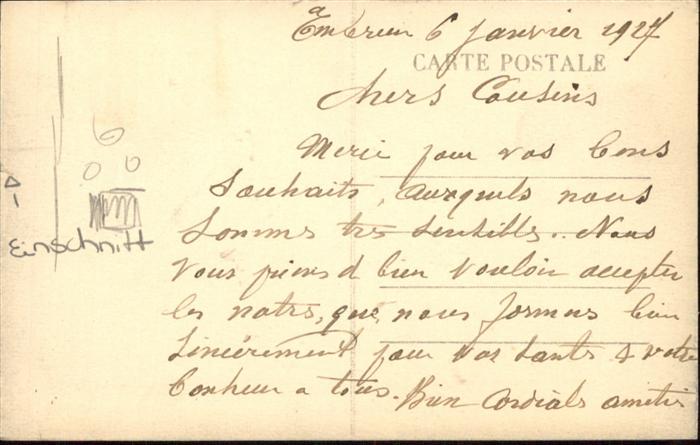 6 Janvier 1927
CARTE POSTALE
chers Cousins
Merci pour vos bons
Souhaits, auxquels nous
Sommes tres sensibles.. Nous
Vous prions d bien vouloir accepter
les notres, que nous formons bien
Sincérement pour vos santés & votre
bonheur a tous. Bien Cordials amitiés
Einschnitt